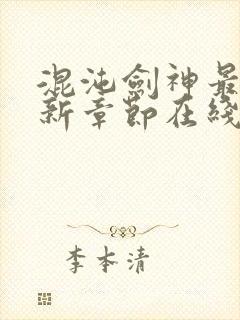 混沌劍神最
新章節在綫
李本清